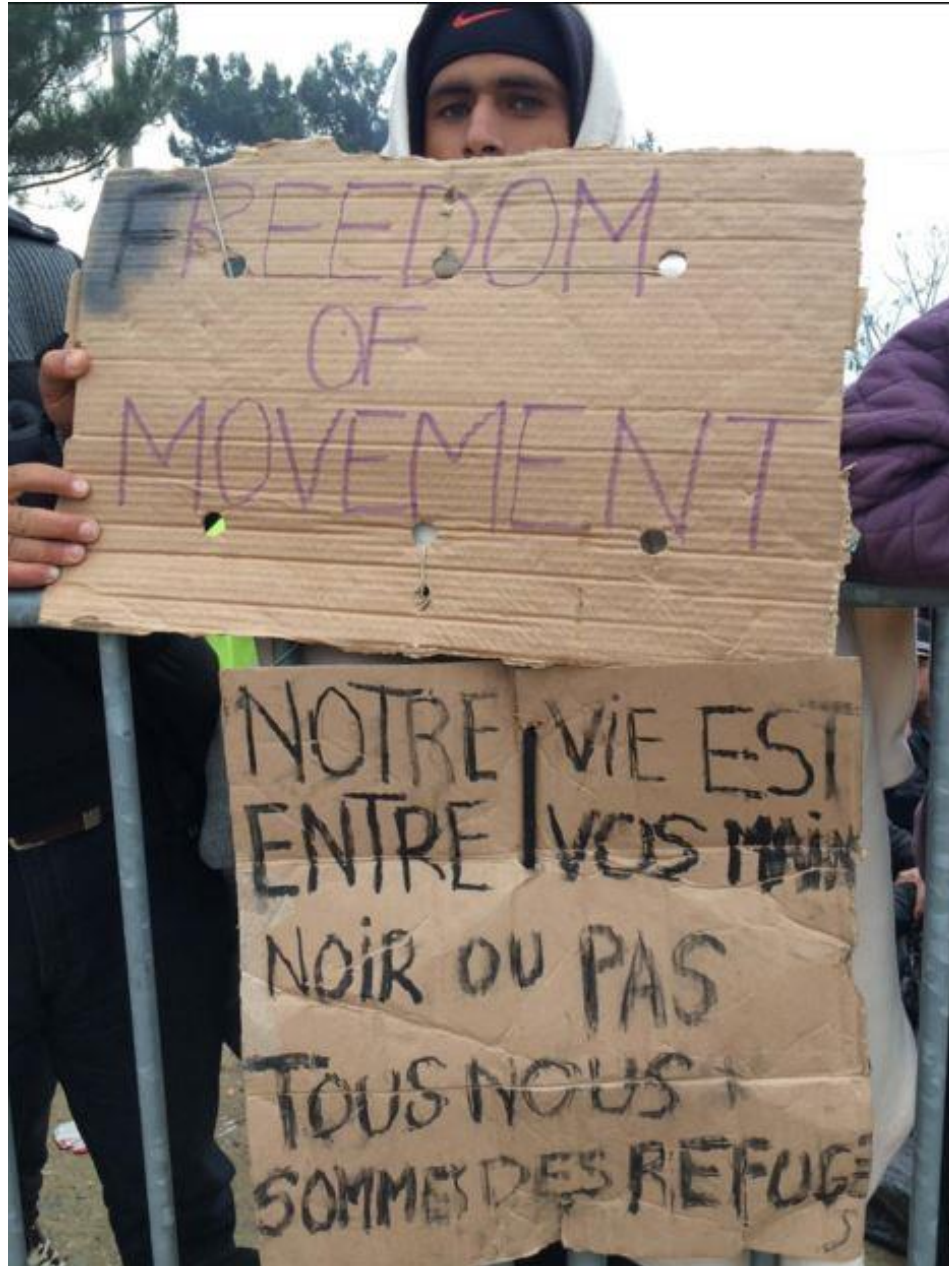 FREEDOM
OF
MOVEMENT
NOTRE VIE EST
ENTRE VOS MAIN
NOIR OU PAS
TOUS NOUS
SOMMES DES REFUGE
S